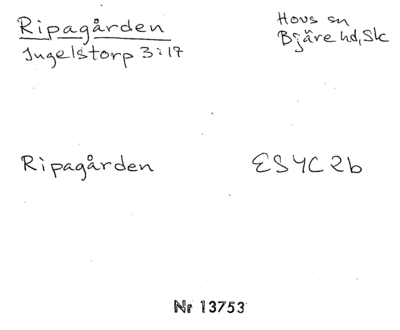 Ripagården
Ingelstorp 3:17
Hovs sn
Bjäre hd, Sk
Ripagården
ESYC2b
Nr 13753